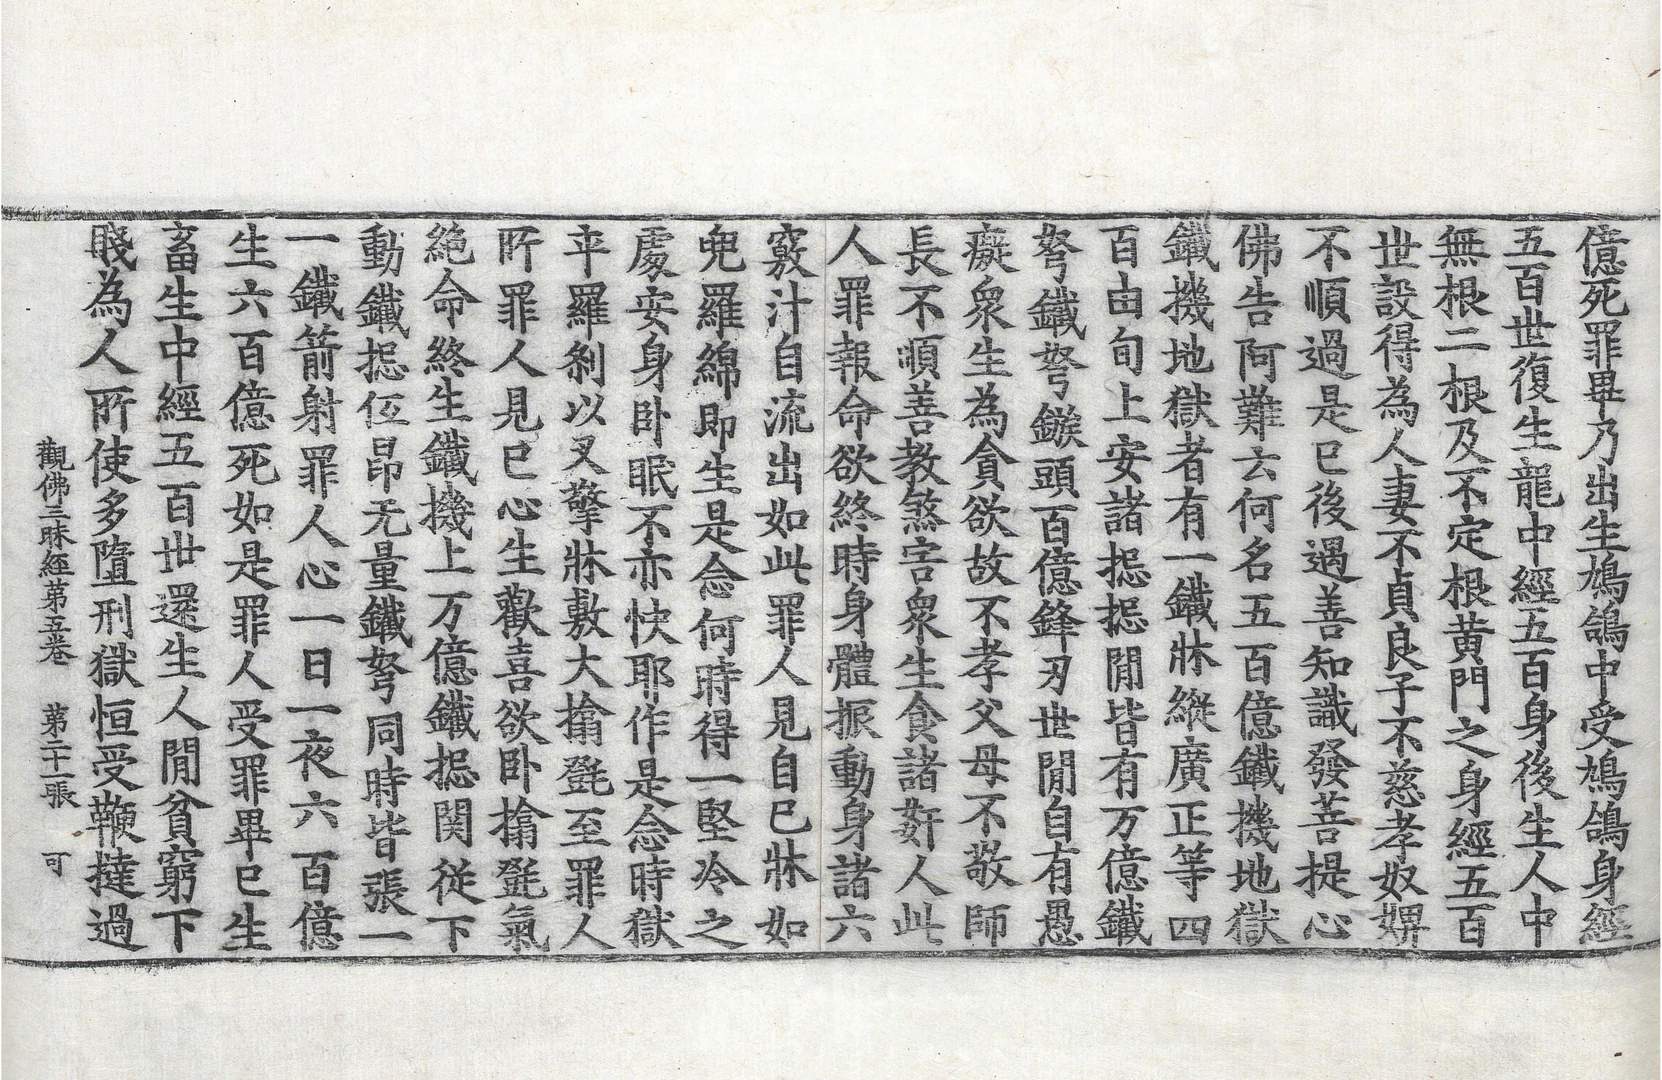 億死罪畢乃出生鳩鴿中受鳩鴿身經
五百世復生龍中經五百身後生人中
無根二根及不定根黃門之身經五百
世設得為人妻不貞良子不慈孝奴婢
不順過是已後遇善知識發菩提心
佛告阿難云何名五百億鐵機地獄
鐵機地獄者有一鐵牀縱廣正等四
百由旬上安諸摁摁閒皆有万億鐵
弩鐵弩鏃頭百億鋒刃世閒自有愚
癡衆生為貪欲故不孝父母不敬師
長不順善教煞害衆生食諸姧人此
人罪報命欲終時身體振動身諸六
竅汁自流出如此罪人見自已牀如
兜羅綿即生是念何時得一堅冷之
處安身卧眠不亦快耶作是念時獄
卒羅剎以叉擎牀敷大㩉㲪至罪人
所罪人見已心生歡喜欲卧㩉㲪氣
絕命終生鐵機上万億鐵摁関從下
動鐵摁仾昂无量鐵弩同時皆張一
一鐵箭射罪人心一日一夜六百億
生六百億死如是罪人受罪畢已生
畜生中經五百世還生人閒貧窮下
賤為人所使多墮刑獄恒受鞭撻過
觀佛三昧經第五卷 第二十一張 可